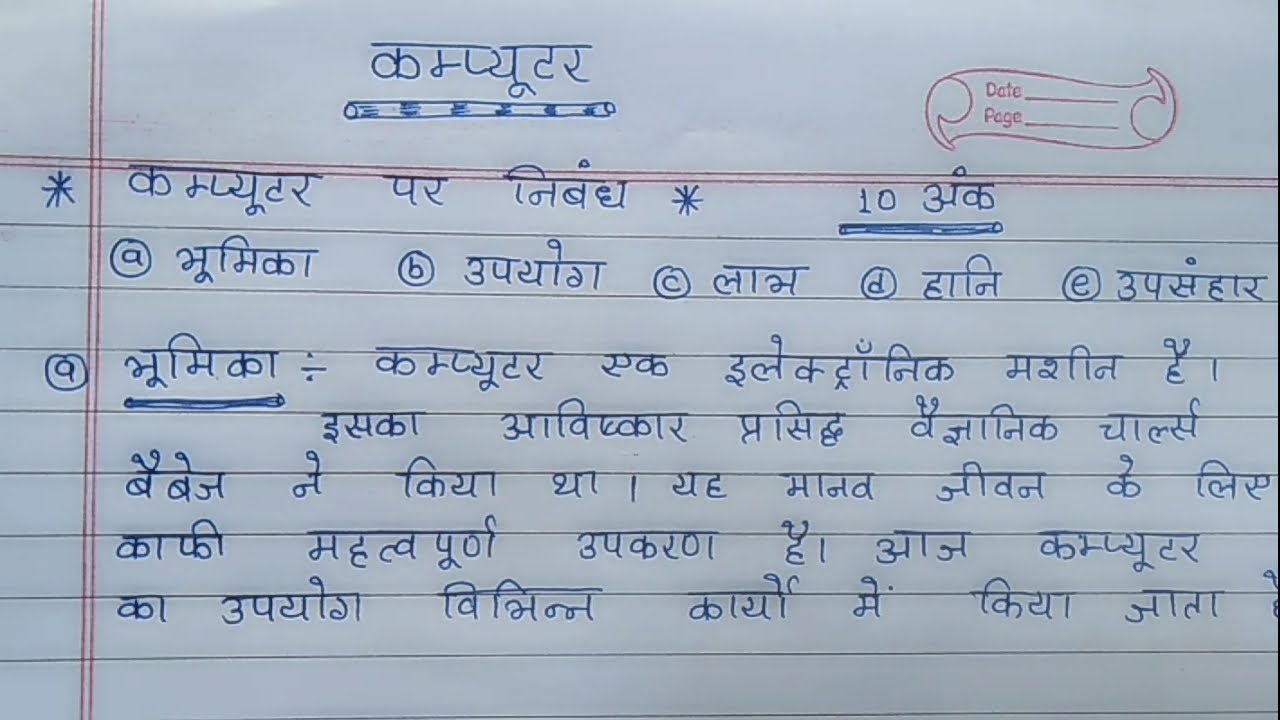 कम्प्यूटर
Date
Page
* कम्प्यूटर पर निबंध * 10 अंक
ⓐ भूमिका ⓑ उपयोग ⓒ लाभ ⓓ हानि ⓔ उपसंहार
ⓐ भूमिका ÷ कम्प्यूटर एक इलेक्ट्रॉंनिक मशीन है।
इसका आविष्कार प्रसिद्ध वैज्ञानिक चार्ल्स
बैबेज ने किया था। यह मानव जीवन के लिए
काफी महत्वपूर्ण उपकरण है। आज कम्प्यूटर
का उपयोग विभिन्न कार्यो में किया जाता